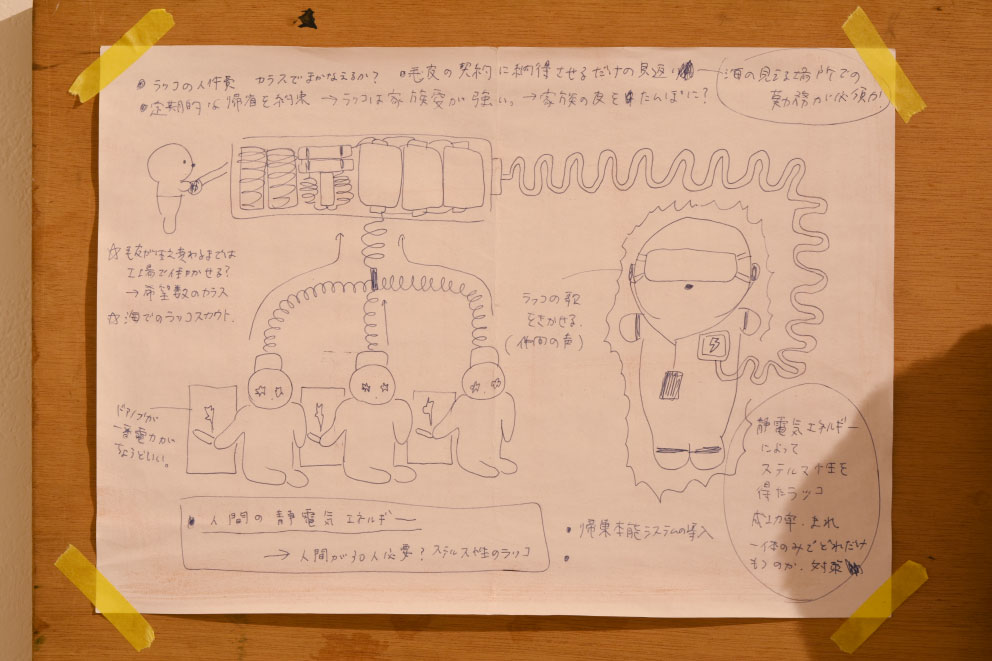 ラッコの人件費 カラスでまかなえるか? 毛皮の契約に納得させるだけの見返り
海の見える場所での
勤務が必須か
定期的な帰海を約束 → ラッコは家族愛が強いっ → 家族の皮をたんぽに?
毛皮が生え変わるまでは
工場で付かせる?
→ 希望数のカラス
海でのラッコスカウト.
ラッコの歌
をきかせる.
(仲間の声)
ドアノブが
一番電力が
ちょうどいい。
静電気エネルギー
によって
ステルス性を
得たラッコ
成功率.まれ
一体のみでどれだけ
もつのか.対策
人間の静電気エネルギー
→ 人間が30人必要? ステルス性のラッコ
帰巣本能システムの導入